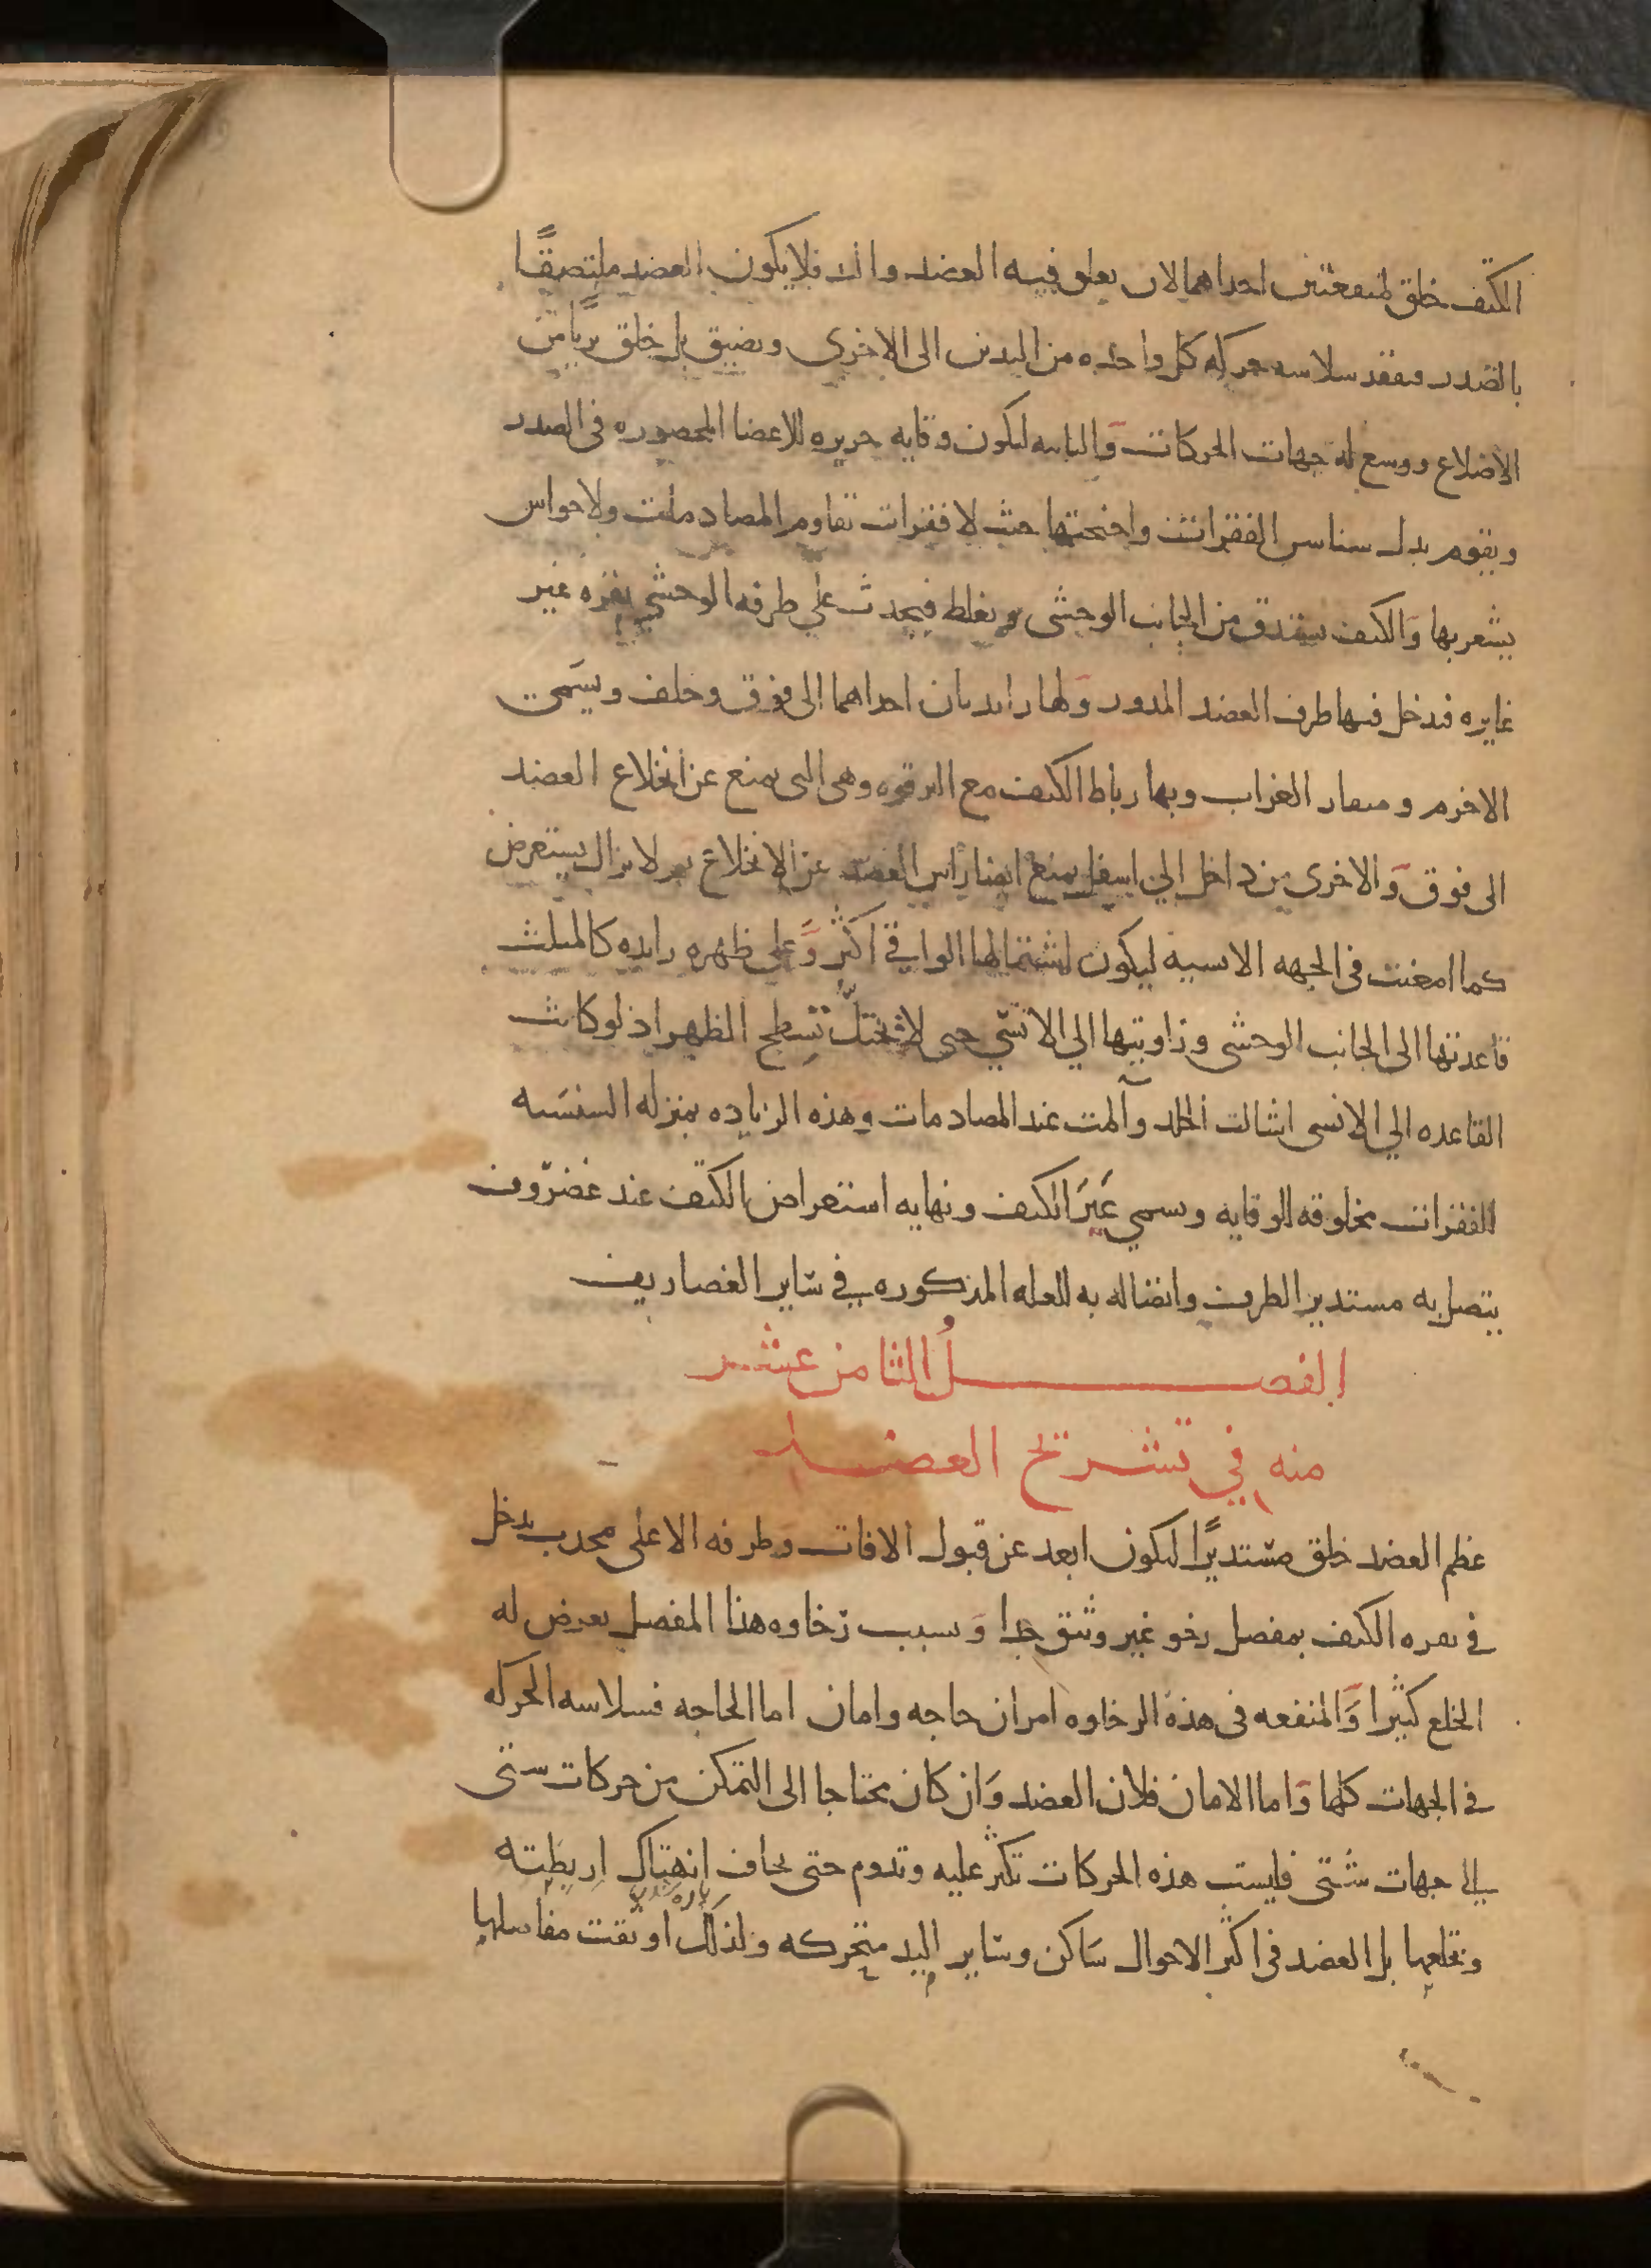 الكتف خلق لمنفعتين احداهما لان يعلق فيه العضد واليد فلا يكون العضد ملتصقًا
بالصدر فيفقد سلاسه حركه كل واحده من اليدين الى الاخرى ويضيق بل خلق بريًا من
الاضلاع ووسع له جهات الحركات والثانيه ليكون وقايه حريزه للاعضا المحصوره فى الصدر
ويقوم بدل سناسن الفقرات واجنحتها حيث لا فقرات تقاوم المصادمات ولا حواس
يشعر بها والكتف يستدق من الجانب الوحشى ويغلظ فيحدث على طرفه الوحشي نقره غير
غايره فيدخل فيها طرف العضد المدور ولها زايدتان احداهما الى فوق وخلف ويسَمى
الاخرم ومنقار الغراب وبها رباط الكتف مع الترقوه وهى التى يمنع عن انخلاع العضد
الى فوق وَالاخرى من داخل الي اسفل يمنع ايضا راس العضد عن الانخلاع ثم لا يزال يستعرض
كما امعنت فى الجهه الانسيه ليكون اشتمالها الواقى اكثر وَعلى ظهره زايده كالمثلث
قاعدتها الى الجانب الوحشى وزاويتها الي الانسّي حتى لا يختلّ تسطح الظهر اذ لو كانت
القاعده الي الانسى اشالت الجلد وآلمت عند المصادمات وهذه الزياده بمنزله السنسَنه
للفقرات مخلوقه للوقايه وسمي عَيَرَ الكتف ونهايه استعراض الكتف عند غضروف
يتصل به مستدير الطرف واتصاله به للعله المذكوره في سَاير الغضاريف
الفصـــلُ الثامن عشر
منه في تشريح العضد
عظم العضد خلق مستديرًا ليكون ابعد عن قبول الافات وَطرفه الاعلى محدب يدخل
في نقره الكتف بمفصل رخو غير وثيق جدا وَبسبب رَخاوه هذا المفصل يعرض له
الخلع كثيرا وَالمنفعه فى هذه الرخاوه امران حاجه وامان اما الحاجه فسلاسه الحركه
في الجهات كلها وَاما الامان فلان العضد وَان كان محتاجا الى التمكن من حركات ستى
الى جهات شتى فليست هذه الحركات تكثر عليه وتدوم حتى يخاف انهتاك اربطته
وتخلعها بل العضد فى اكثر الاحوال سَاكن وسَاير اليد متحركه ولذلك اوثقت مفاصلها